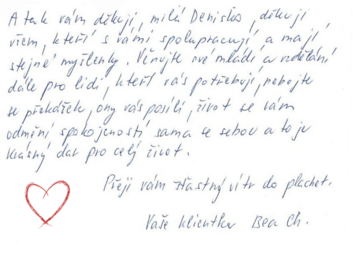 A tak vám děkuji, milá Denisko, děkuji
všem, kteří s vámi spolupracují, a mají
stejné myšlenky. Věnujte své mládí a vzdělání
dále pro lidi, kteří vás potřebují, nebojte
se překážek, ony vás posílí, život se vám
odmění spokojeností sama se sebou a to je
krásný dar pro celý život.
Přeji vám šťastný vítr do plachet.
Vaše klientka Bea Ch.